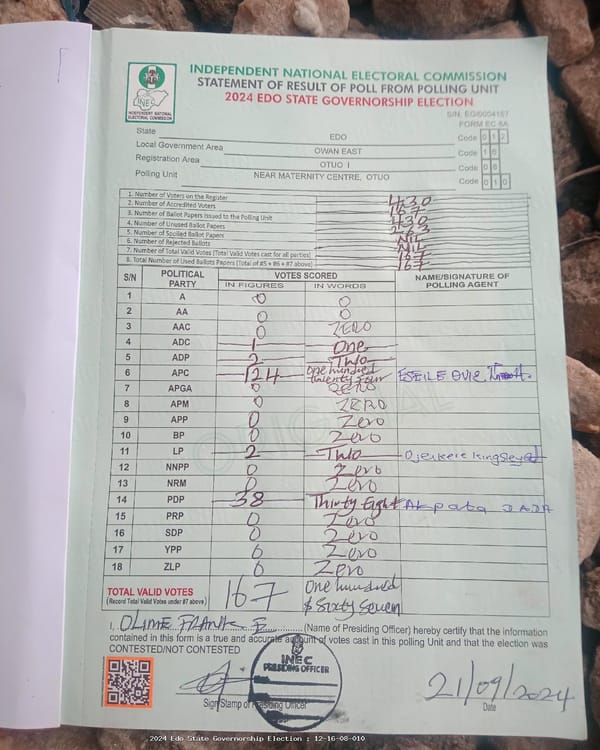 INDEPENDENT NATIONAL ELECTORAL COMMISSION
STATEMENT OF RESULT OF POLL FROM POLLING UNIT
2024 EDO STATE GOVERNORSHIP ELECTION
INEC
INDEPENDENT NATIONAL ELECTORAL COMMISSION
S/N. EG/0004157
FORM EC 8A
State EDO Code 0 1 2
Local Government Area OWAN EAST Code 1 6
Registration Area OTUO I Code 0 8
Polling Unit NEAR MATERNITY CENTRE, OTUO Code 0 1 0
1. Number of Voters on the Register 430
2. Number of Accredited Voters 167
3. Number of Ballot Papers Issued to the Polling Unit 430
4. Number of Unused Ballot Papers 263
5. Number of Spoiled Ballot Papers NIL
6. Number of Rejected Ballots NIL
7. Number of Total Valid Votes (Total Valid Votes cast for all parties) 167
8. Total Number of Used Ballots Papers (Total of #5 + #6 + #7 above) 167
S/N POLITICAL PARTY VOTES SCORED NAME/SIGNATURE OF POLLING AGENT
IN FIGURES IN WORDS
1 A 0 0
2 AA 0 0
3 AAC 0 ZERO
4 ADC 1 One
5 ADP 2 Two
6 APC 124 One hundred twenty four ESEILE OVIE
7 APGA 0 ZERO
8 APM 0 ZERO
9 APP 0 Zero
10 BP 0 Zero
11 LP 2 Two Ojeakere Kingsley
12 NNPP 0 Zero
13 NRM 0 Zero
14 PDP 38 Thirty Eight Akpata
15 PRP 0 Zero
16 SDP 0 Zero
17 YPP 0 Zero
18 ZLP 0 Zero
TOTAL VALID VOTES 167 One hundred & Sixty Seven
(Record Total Valid Votes under #7 above)
I, OLIME FRANK E (Name of Presiding Officer) hereby certify that the information
contained in this form is a true and accurate account of votes cast in this polling Unit and that the election was
CONTESTED/NOT CONTESTED
INEC
PRESIDING OFFICER
Sign/Stamp of Presiding Officer
21/09/2024
Date
ORIGINAL
2024 Edo State Governorship Election : 12-16-08-010